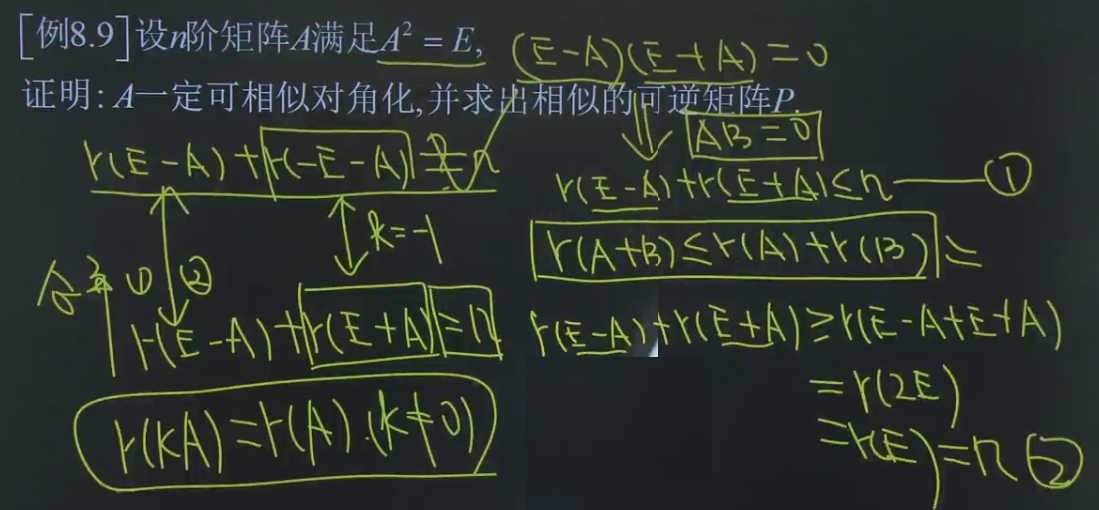 [例8.9]设n阶矩阵A满足A² = E,
(E-A)(E+A)=0
证明: A一定可相似对角化,并求出相似的可逆矩阵P.
AB=0
r(E-A)+r(-E-A) = n
r(E-A)+r(E+A)≤n ①
k=-1
r(A+B)≤r(A)+r(B)
①②
r(E-A)+r(E+A)=n
r(E-A)+r(E+A)≥r(E-A+E+A)
=r(2E)
r(kA)=r(A).(k≠0)
=r(E)=n ②